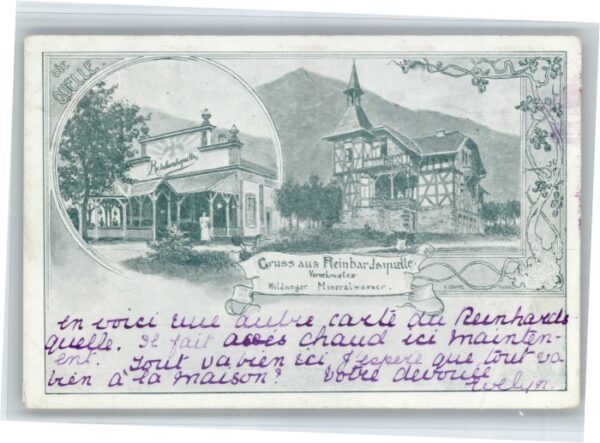 die
QUELLE.
Reinhardsquelle
Gruss aus Reinhardsquelle
Vornehmstes
Wildunger Mineralwasser.
en voici une autre carte du Reinhards
quelle. Il fait assés chaud ici mainten-
ent. Tout va bien ici J'espère que tout va
bien à la maison? Votre devouée
Evelyn.